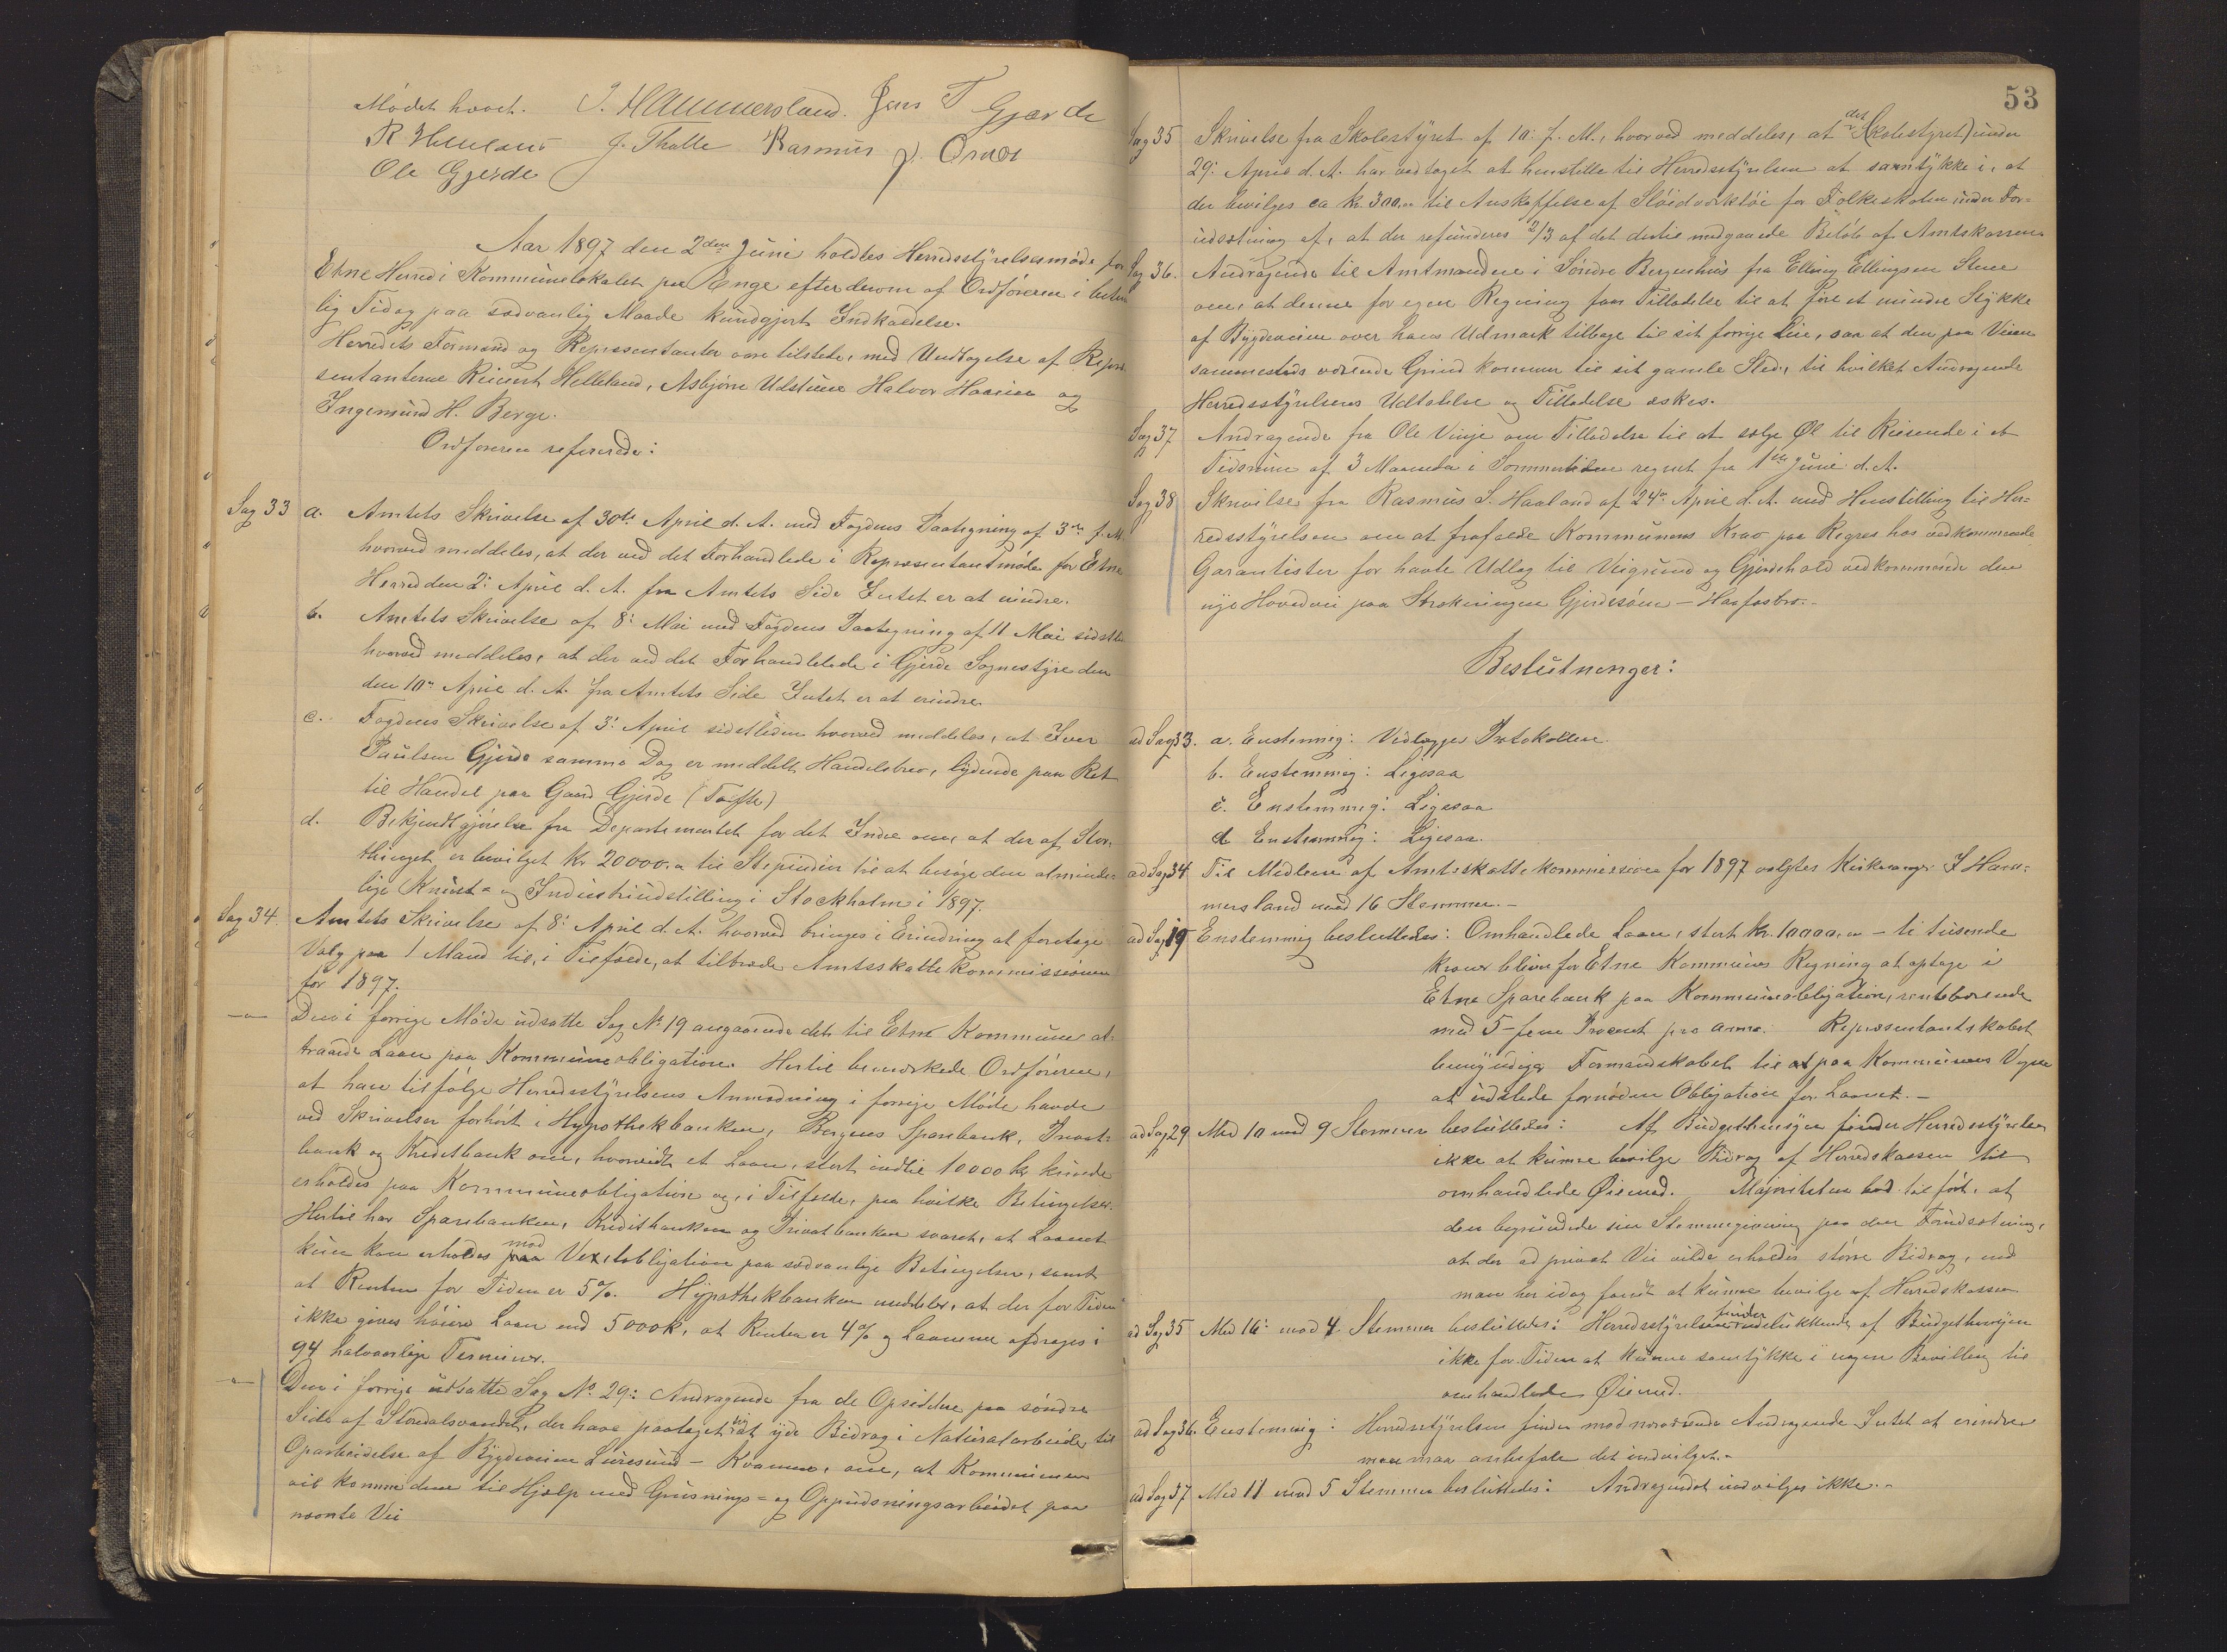 Mødet hævet. I. Hammersland. Jens T Gjærde
R Helleland J. Thalle Rasmus J. Ørnes
Ole Gjerde
Aar 1897 den 2den Juni holdtes Herredsstyrelsesmøde for
Etne Herred i Kommunelokalet paa Enge efter denom af Ordføreren i betime
lig Tid og paa sedvanlig Maade kundgjort Indkaldelse.
Herredets Formænd og Repræsentanter vare tilstede, med Undtagelse af Repræ
sentanterne Reinert Helleland, Asbjørn Udstuene Halvor Haaeim og
Ingemund H. Berge.
Ordføreren refererede:
Sag 33 a. Amtets Skrivelse af 30te April d. A. med Fogdens Paategning af 3die f. M.
hvorved meddeles, at der ved det Forhandlede i Repræsentantmøde for Etne
Herred den 2: April d. A. fra Amtets Side Intet er at erindre.
b. Amtets Skrivelse af 8: Mai med Fogdens Paategning af 11 Mai sidstl.
hvorved meddeles, at der ved det Forhandlede i Gjerde Sognestyre den
den 10de April d. A. fra Amtets Side Intet er at erindre
c. Fogdens Skrivelse af 3: April sidstleden hvorved meddeles, at Iver
Paulsen Gjerde samme Dag er meddelt Handelsbrev, lydende paa Ret
til Handel paa Gaard Gjerde (Tofte)
d. Bekjendtgjørelse fra Departementet for det Indre om, at der af Stor,
thinget er bevilget Kr 20000.00 til Stipendier til at besøge den alminde
lige Kunst- og Industriudstilling i Stockholm i 1897.
Sag 34. Amtets Skrivelse af 8: April d. A. hvorved bringes i Erindring at foretage
Valg paa 1 Mand til, i Tilfælde, at tiltræde Amtsskattekommissionen
for 1897.
—"— Den i forrige Møde udsatte Sag No 19 angaaende det til Etne Kommune at-
traaede Laan paa Kommuneobligation. Hertil bemærkede Ordføreren,
at han tilfølge Herredsstyrelsens Anmodning i forrige Møde havde
ved Skrivelser forhørt i Hypothekbanken, Bergens Sparebank, Privat-
bank og Kreditbank om, hvorvidt et Laan, stort indtil 10000 kr, kunde
erholdes paa Kommuneobligation og, i Tilfælde, paa hvilke Betingelser.
Hertil har Sparebanken, Kreditbanken og Privatbanken svaret, at Laanet
kun kan erholdes paa mod Vexelobligation paa sedvanlige Betingelser, samt
at Renten for Tiden er 5%. Hypothekbanken meddeler, at der for Tiden
ikke gives høiere Laan end 5000 k, at Renten er 4% og Laanene afdrages i
94 halvaarlige Terminer.
—"— Den i forrige udsatte Sag No. 29: Andragende fra de Opsiddere paa søndre
Side af Stordalsvandet, der have paataget sig at yde Bidrag i Naturalarbeide til
Oparbeidelse af Bygdeveien Luresund - Kvamme, om, at Kommunen
vil komme dem til Hjælp med Grusnings- og Oppudsningsarbeidet paa
nævnte Vei
53
Sag 35 Skrivelse fra Skolestyret af 10: f. M., hvorved meddeles, at det (Skolestyret) under
29: April d. A. har vedtaget at henstille til Herredsstyrelsen at samtykke i, at
der bevilges ca kr. 300.00 til Anskaffelse af Sløidverktøi for Folkeskolen under For-
udsætning af, at der refunderes 2/3 af det dertil medgaaede Beløb af Amtskassen
Sag 36. Andragende til Amtmanden i Søndre Bergenhus fra Elling Ellingsen Stene
om, at denne for egen Regning faar Tilladelse til at føre et mindre Stykke
af Bygdeveien over hans Udmark tilbage til sit forrige Leie, saa at den paa Veien
sammesteds værende Grind kommer til sit gamle Sted, til hvilket Andragende
Herredsstyrelsens Udtalelse og Tilladelse æskes.
Sag 37 Andragende fra Ole Vinje om Tilladelse til at sælge Øl til Reisende i et
Tidsrum af 3 Maaneder i Sommertiden regnet fra 1ste Juni d. A.
Sag 38 Skrivelse fra Rasmus S. Haaland af 24de April d. A. med Henstilling til Her-
redsstyrelsen om at frafalde Kommunens Krav paa Regres hos vedkommende
Garantister for havte Udlæg til Veigrund og Gjerdehold vedkommende den
nye Hovedvei paa Strekningen Gjerdesøen - Haafosbro.-
Beslutninger:
ad Sag 33. a. Enstemmig: Vedlægges Protokollen
b. Enstemmig: Ligesaa
c. Enstemmig: Ligesaa
d Enstemmig: Ligesaa.
ad Sag 34 Til Medlem af Amtsskattekommissionen for 1897 valgtes Kirkesanger I Ham-
mersland med 16 Stemmer.-
ad Sag 19 Enstemmig besluttedes: Omhandlede Laan, stort Kr. 10000.00 - ti tusende
kroner bliver for Etne Kommunes Regning at optage i
Etne Sparebank paa Kommuneobligation, rentebærende
med 5 - fem Procent pro anno. Repræsentantskabet
bemyndiger Formandskabet til at paa Kommunens Vegne
at udstede fornøden Obligation for Laanet.-
ad Sag 29 Med 10 mod 9 Stemmer besluttedes: Af Budgethensyn finder Herredsstyrelsen
ikke at kunne bevilge Bidrag af Herredskassen til
omhandlede Øiemed. Majoriteten bad tilført, at
den begrundede sin Stemmegivning paa den Forudsætning,
at der ad privat Vei vilde erholdes større Bidrag, end
man her idag fandt at kunne bevilge af Herredskassen
ad Sag 35 Med 16: mod 4 Stemmer besluttedes: Herredsstyrelsen finder udelukkende af Budgethensyn
ikke for Tiden at kunne samtykke i nogen Bevilling til
omhandlede Øiemed.
ad Sag 36. Enstemmig: Herredsstyrelsen finder mod nærværende Andragende Intet at erindre
men maa anbefale det indvilget.-
ad Sag 37 Med 11 mod 5 Stemmer besluttedes: Andragendet indvilges ikke.-